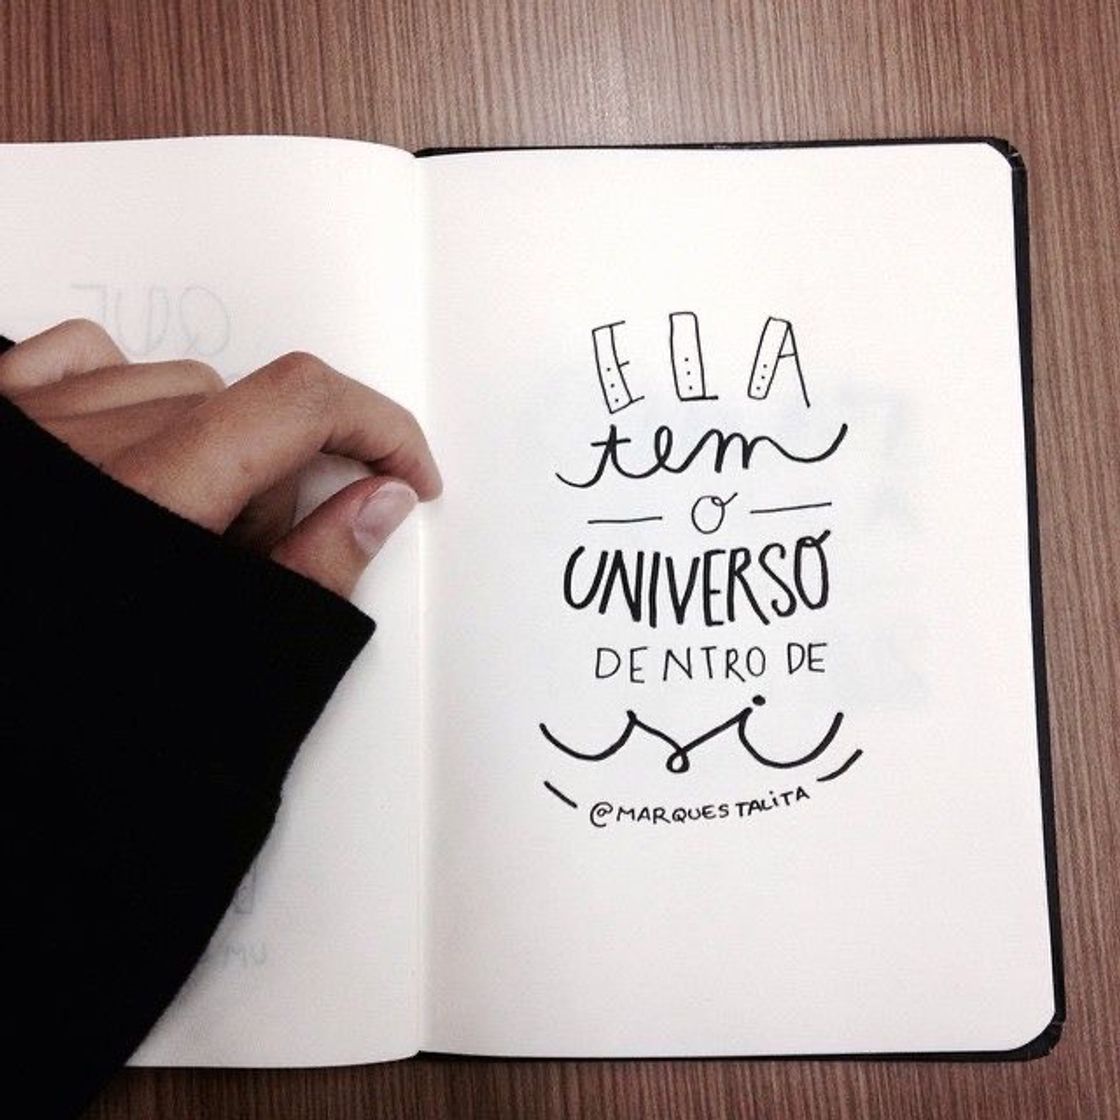 ELA
tem
O
UNIVERSO
DENTRO DE
si
@MARQUESTALITA
QUE
UM